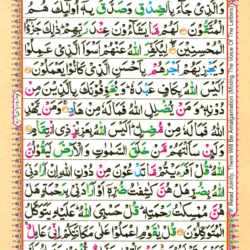 وَالَّذِىْ جَآءَ بِالصِّدْقِ وَصَدَّقَ بِهٖٓ اُولٰٓئِكَ هُمُ
الْمُتَّقُوْنَ لَهُمْ مَّا يَشَآءُوْنَ عِنْدَ رَبِّهِمْ ذٰلِكَ جَزٰٓؤُا
الْمُحْسِنِيْنَ لِيُكَفِّرَ اللّٰهُ عَنْهُمْ اَسْوَاَ الَّذِىْ عَمِلُوْا
وَيَجْزِيَهُمْ اَجْرَهُمْ بِاَحْسَنِ الَّذِىْ كَانُوْا يَعْمَلُوْنَ
اَلَيْسَ اللّٰهُ بِكَافٍ عَبْدَهٗ وَيُخَوِّفُوْنَكَ بِالَّذِيْنَ مِنْ
دُوْنِهٖ وَمَنْ يُّضْلِلِ اللّٰهُ فَمَا لَهٗ مِنْ هَادٍ وَمَنْ يَّهْدِ
اللّٰهُ فَمَا لَهٗ مِنْ مُّضِلٍّ اَلَيْسَ اللّٰهُ بِعَزِيْزٍ ذِى انْتِقَامٍ
وَلَئِنْ سَاَلْتَهُمْ مَّنْ خَلَقَ السَّمٰوٰتِ وَالْاَرْضَ لَيَقُوْلُنَّ
اللّٰهُ قُلْ اَفَرَءَيْتُمْ مَّا تَدْعُوْنَ مِنْ دُوْنِ اللّٰهِ اِنْ اَرَادَنِىَ
اللّٰهُ بِضُرٍّ هَلْ هُنَّ كٰشِفٰتُ ضُرِّهٖٓ اَوْ اَرَادَنِىْ بِرَحْمَةٍ هَلْ
هُنَّ مُمْسِكٰتُ رَحْمَتِهٖ قُلْ حَسْبِىَ اللّٰهُ عَلَيْهِ يَتَوَكَّلُ
الْمُتَوَكِّلُوْنَ قُلْ يٰقَوْمِ اعْمَلُوْا عَلٰى مَكَانَتِكُمْ اِنِّىْ
Read Jointly, There Will Be Amalgamation (Mixing The Voice Of The Letters)